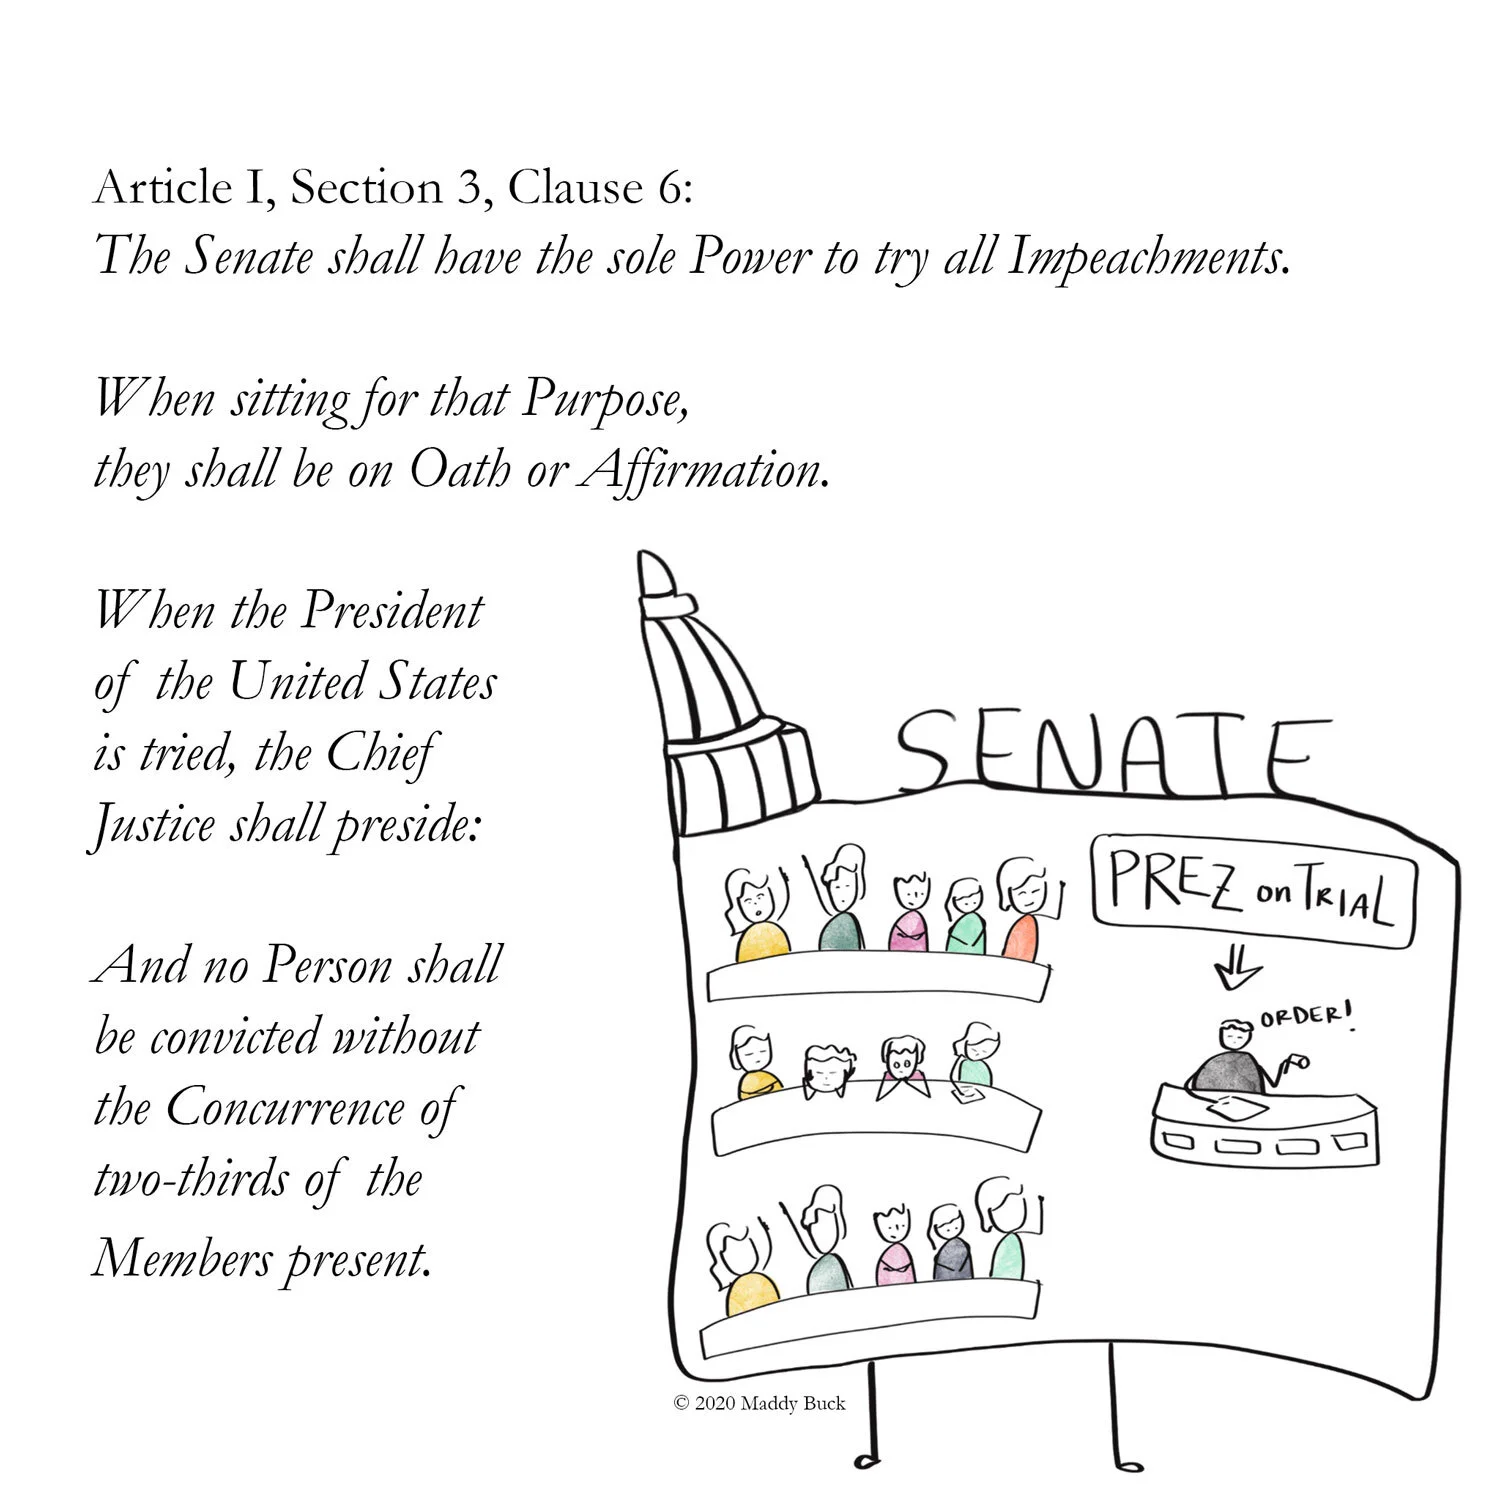 Article I, Section 3, Clause 6:
The Senate shall have the sole Power to try all Impeachments.
When sitting for that Purpose,
they shall be on Oath or Affirmation.
When the President
of the United States
is tried, the Chief
Justice shall preside:
And no Person shall
be convicted without
the Concurrence of
two-thirds of the
Members present.
SENATE
PREZ on TRIAL
ORDER!
© 2020 Maddy Buck